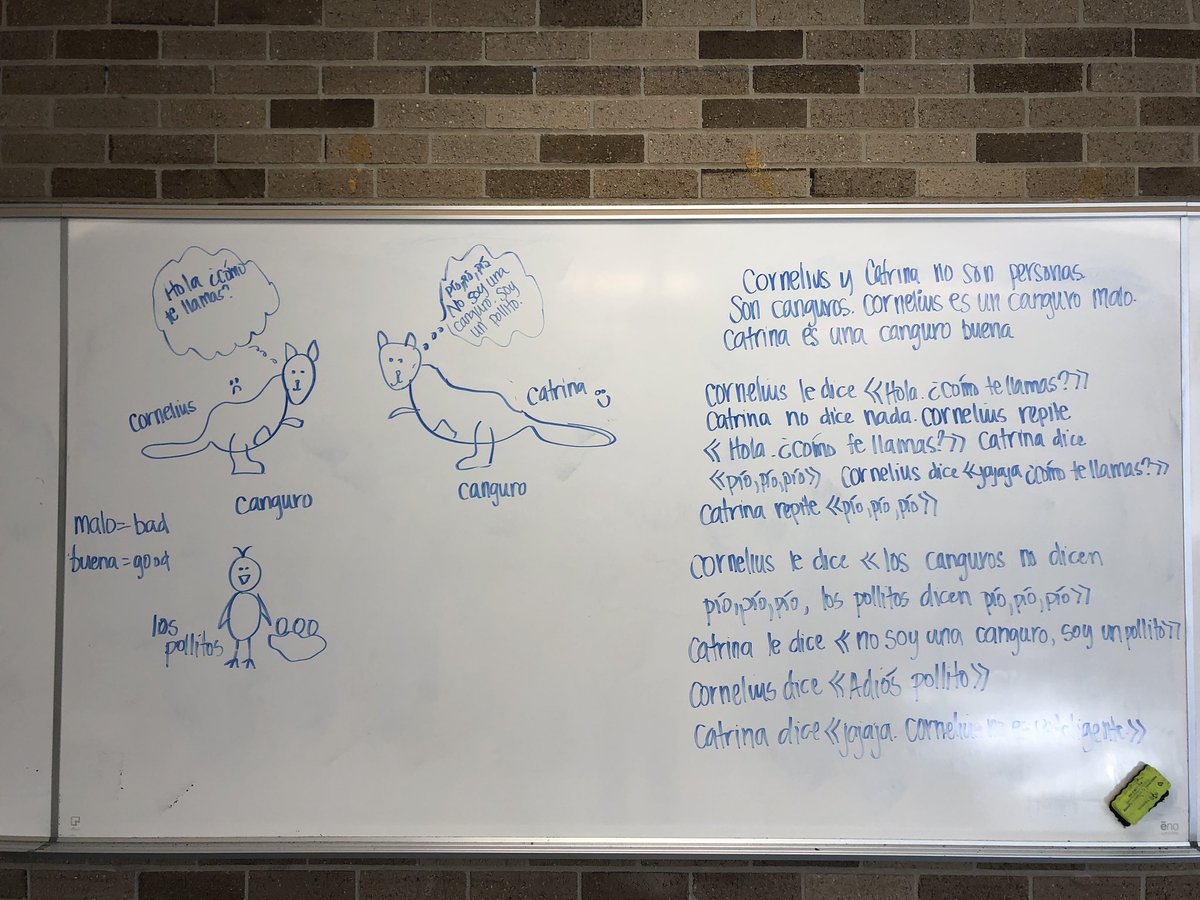 Hola ¿cómo
te llamas?
pío, pío, pío
No soy una
canguro. soy
un pollito.
cornelius
catrina
canguro
canguro
malo=bad
buena=good
los
pollitos
Cornelius y Catrina no son personas.
Son canguros. Cornelius es un canguro malo.
Catrina es una canguro buena
Cornelius le dice «Hola. ¿Cómo te llamas?»
Catrina no dice nada. Cornelius repite
«Hola. ¿Cómo te llamas?» Catrina dice
«pío, pío, pío» Cornelius dice «jajaja ¿cómo te llamas?»
Catrina repite «pío, pío, pío»
Cornelius le dice «los canguros no dicen
pío, pío, pío, los pollitos dicen pío, pío, pío»
Catrina le dice «no soy una canguro, soy un pollito»
Cornelius dice «Adiós pollito»
Catrina dice «jajaja. Cornelius no es inteligente.»
ēno